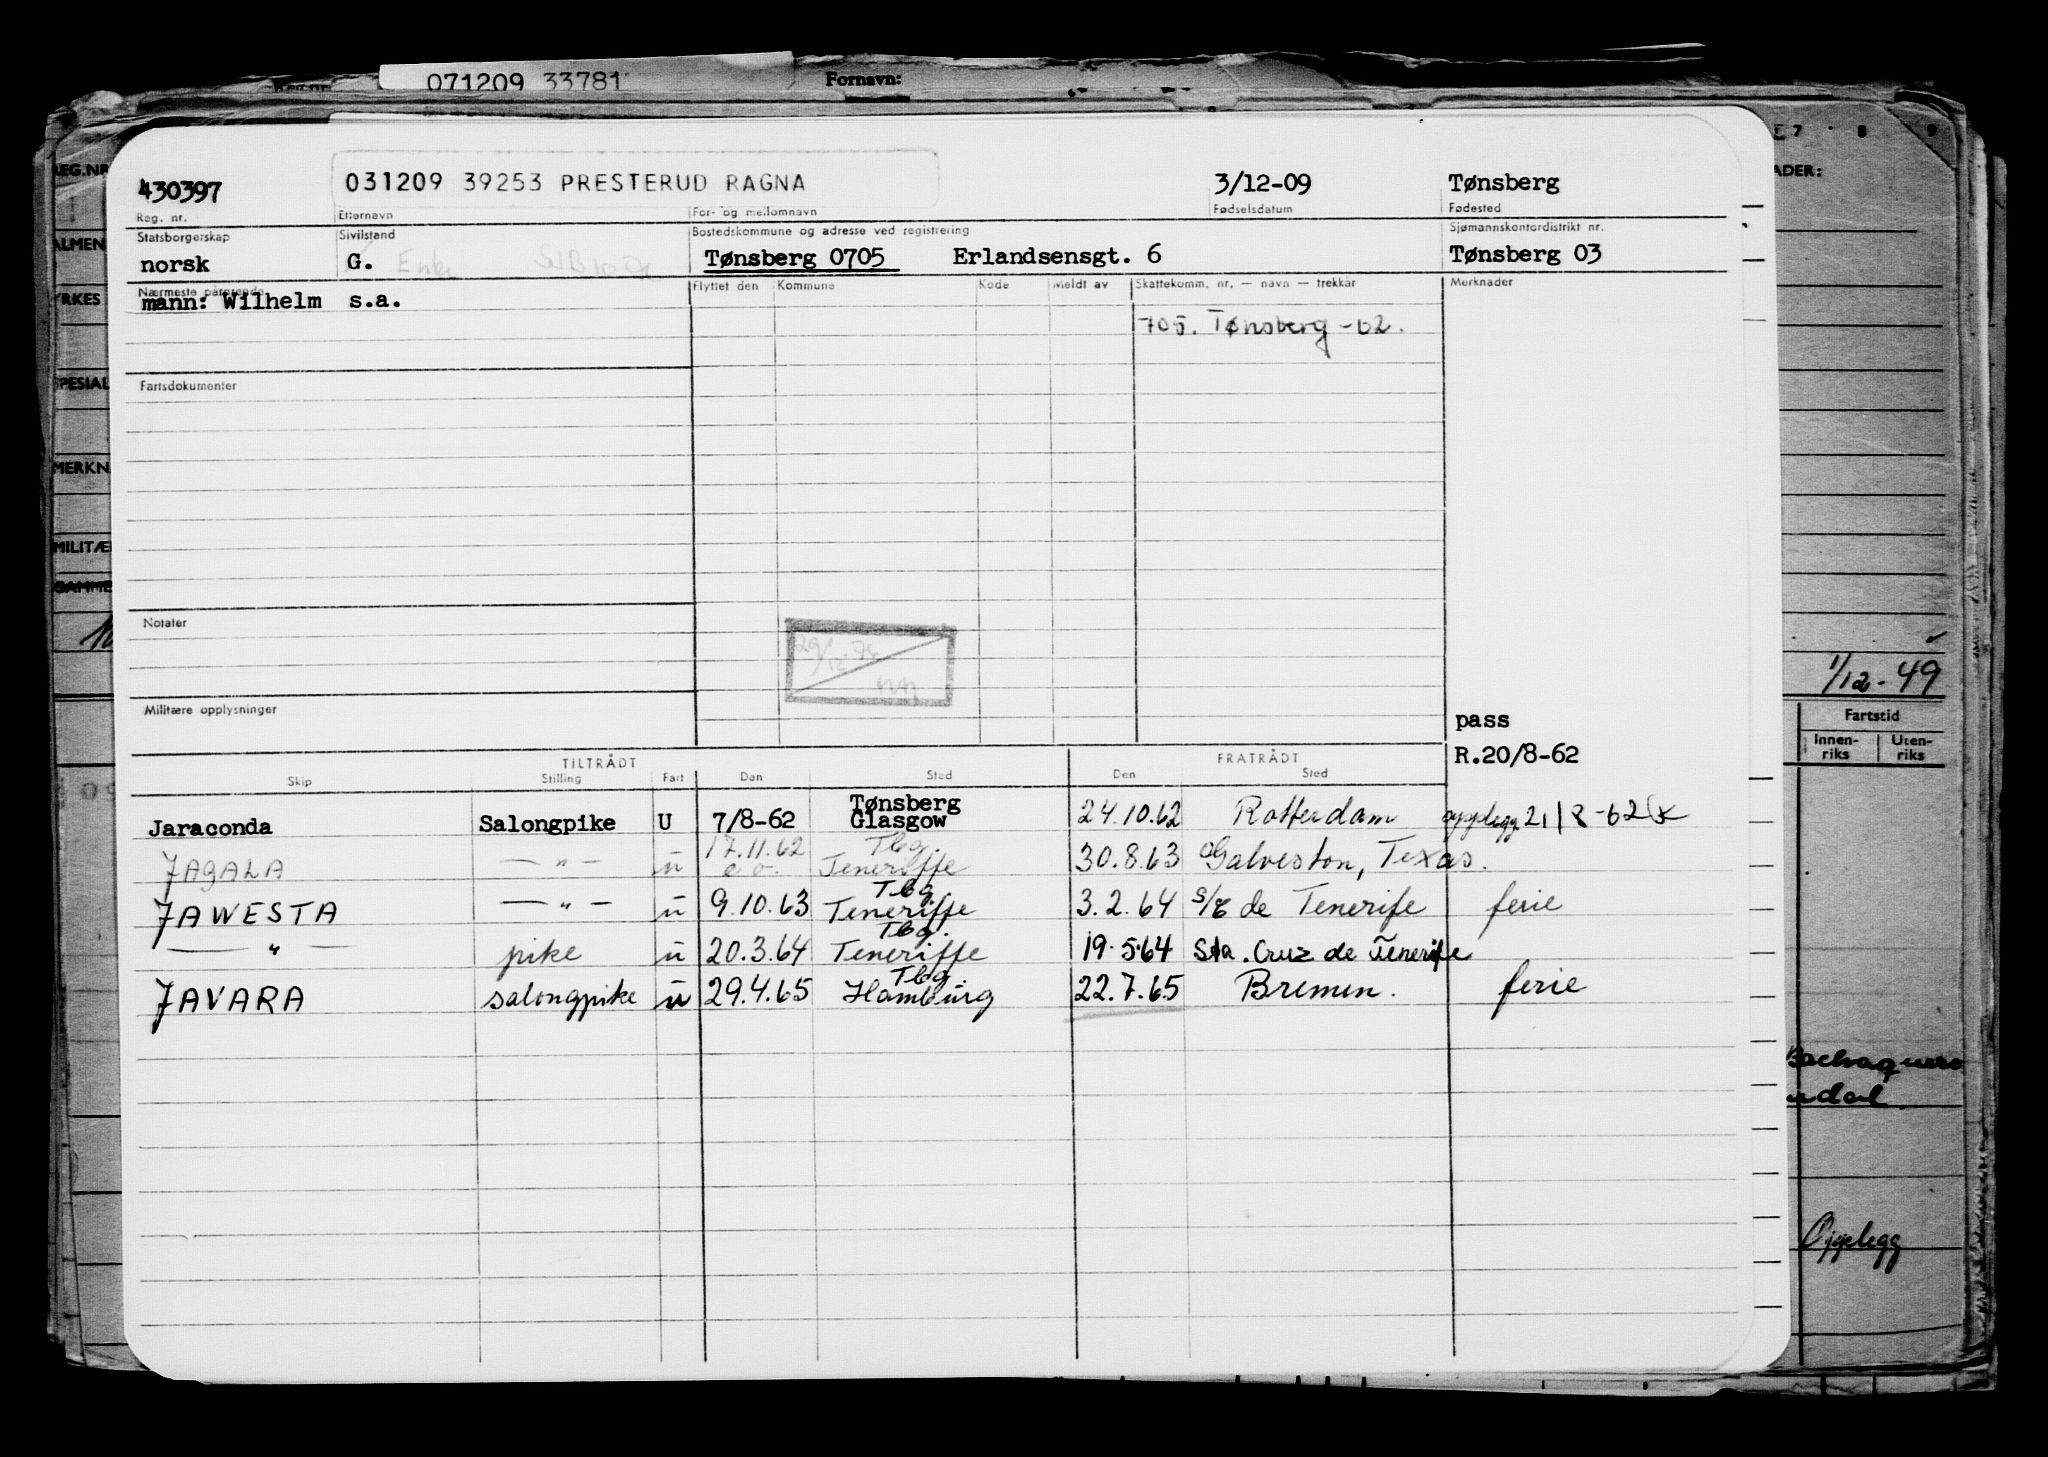 071209 33781 Fornavn:
7 8 9
430397 031209 39253 PRESTERUD RAGNA 3/12-09 Tønsberg
Reg. nr. Etternavn For- og mellomnavn Fødselsdatum Fødested
Statsborgerskap Sivilstand Bostedskommune og adresse ved registrering Sjømannskontordistrikt nr.
norsk G. Enke Tønsberg 0705 Erlandsensgt. 6 Tønsberg 03
Nærmeste pårørende Flyttet den Kommune Kode Meldt av Skattekomm. nr. — navn — trekkår Merknader
mann: Wilhelm s.a.
705. Tønsberg -62.
Fartsdokumenter
Notater
Militære opplysninger
pass
R.20/8-62
TILTRÅDT FRATRÅDT
Skip Stilling Fart Den Sted Den Sted
Jaraconda Salongpike U 7/8-62 Tønsberg Glasgow 24.10.62 Rotterdam opplegg. 21/8-62
JAGALA — " — u 17.11.62 e.o. Tbg. Teneriffe 30.8.63 Galveston, Texas.
JAWESTA — " — u 9.10.63 Tbg. Teneriffe 3.2.64 S/C de Tenerife ferie
— " — pike u 20.3.64 Tbg. Teneriffe 19.5.64 Sta. Cruz de Tenerife
JAVARA salongpike u 29.4.65 Tbg Hamburg 22.7.65 Bremen. ferie
ADER:
1/12-49
Fartstid
Innen-riks Uten-riks
Opplegg
EG.NR
ALMEN
YRKES
SPESIAL
MERKN
MILITÆ
GAMME